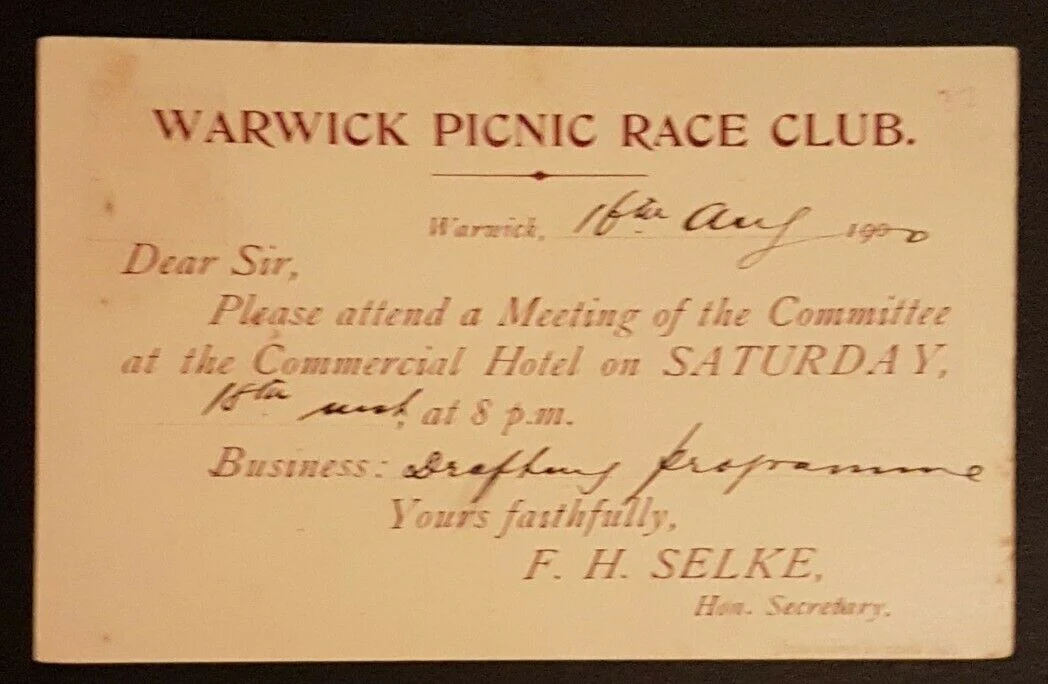 WARWICK PICNIC RACE CLUB.
Warwick, 16th Aug 1900
Dear Sir,
Please attend a Meeting of the Committee
at the Commercial Hotel on SATURDAY,
18th inst, at 8 p.m.
Business: Drafting programme
Yours faithfully,
F. H. SELKE,
Hon. Secretary.